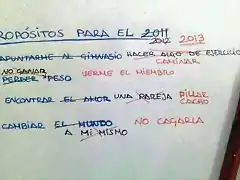 PROPÓSITOS PARA EL 2011 2012 2013
APUNTARME AL GIMNASIO HACER ALGO DE EJERCICIO
CAMINAR
NO GANAR
PERDER PESO VERME EL MIEMBRO
ENCONTRAR EL AMOR UNA PAREJA PILLAR
CACHO
CAMBIAR EL MUNDO NO CAGARLA
A MI MISMO